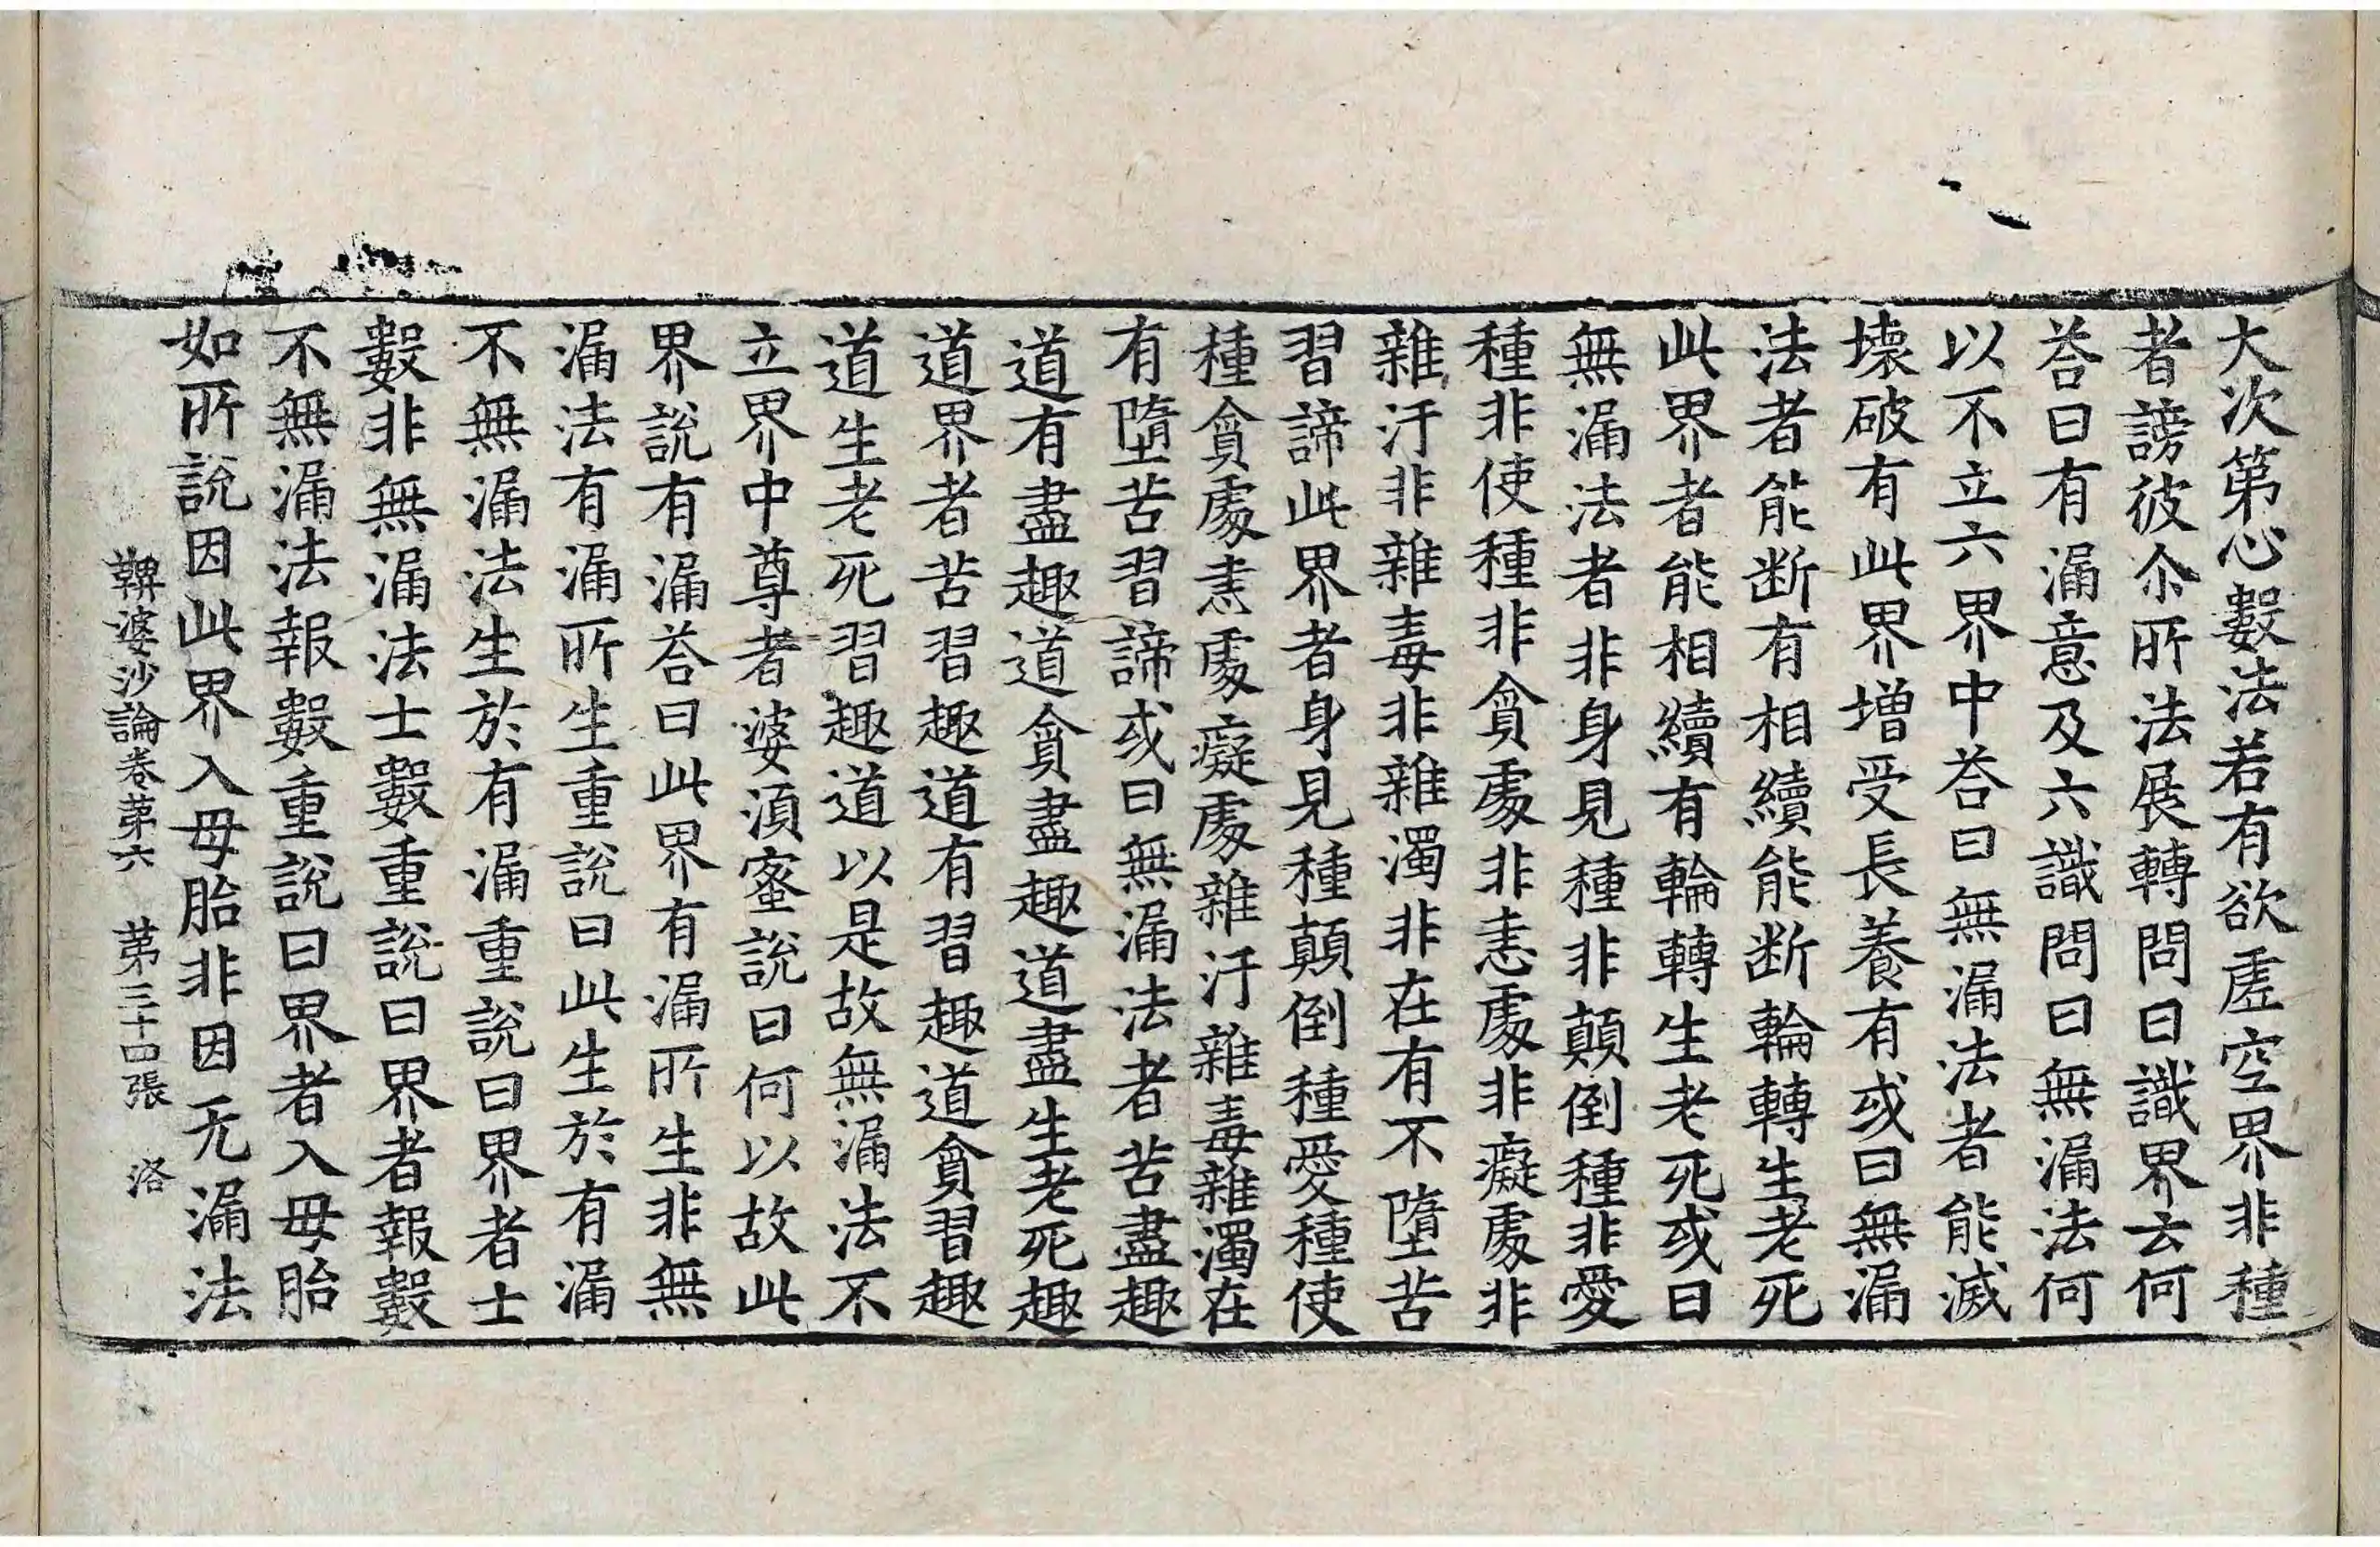 大次第心數法若有欲虛空界非種
者謗彼尒所法展轉問曰識界云何
荅曰有漏意及六識問曰無漏法何
以不立六界中荅曰無漏法者能滅
壞破有此界增受長養有或曰無漏
法者能断有相續能断輪轉生老死
此界者能相續有輪轉生老死或曰
無漏法者非身見種非顛倒種非愛
種非使種非貪處非恚處非癡處非
雜汙非雜毒非雜濁非在有不墮苦
習諦此界者身見種顛倒種愛種使
種貪處恚處癡處雜汙雜毒雜濁在
有墮苦習諦或曰無漏法者苦盡趣
道有盡趣道貪盡趣道盡生老死趣
道界者苦習趣道有習趣道貪習趣
道生老死習趣道以是故無漏法不
立界中尊者婆湏蜜說曰何以故此
界說有漏荅曰此界有漏所生非無
漏法有漏所生重說曰此生於有漏
不無漏法生於有漏重說曰界者士
數非無漏法士數重說曰界者報數
不無漏法報數重說曰界者入母胎
如所說因此界入母胎非因无漏法
鞞婆沙論卷第六　第三十四張　洛